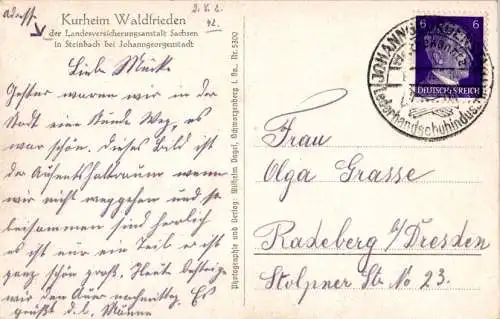 2. V. 2.
42.
Kurheim Waldfrieden
der Landesversicherungsanstalt Sachsen
in Steinbach bei Johanngeorgenstadt
Liebe
Gestern waren wir in der
Stadt eine Stunde Weg, es
war schön. Dieses Bild ist
der Aufenthaltsraum wenn
wir nicht weggehen und so
beisammen sind herrlich
es ist nur ein Teil er ist
ganz schön groß. Heute
wir den nachmittag. Es
grüßt d. l. Männe
Photographie und Verlag: Wilhelm Vogel, Schwarzenberg i. Sa. Nr. 5300
6 6
DEUTSCHES REICH
JOHANNGEORGENSTADT
Lederhandschuhindustrie
Frau
Olga Grasse
Radeberg b/Dresden
Stolpner Str. No 23.